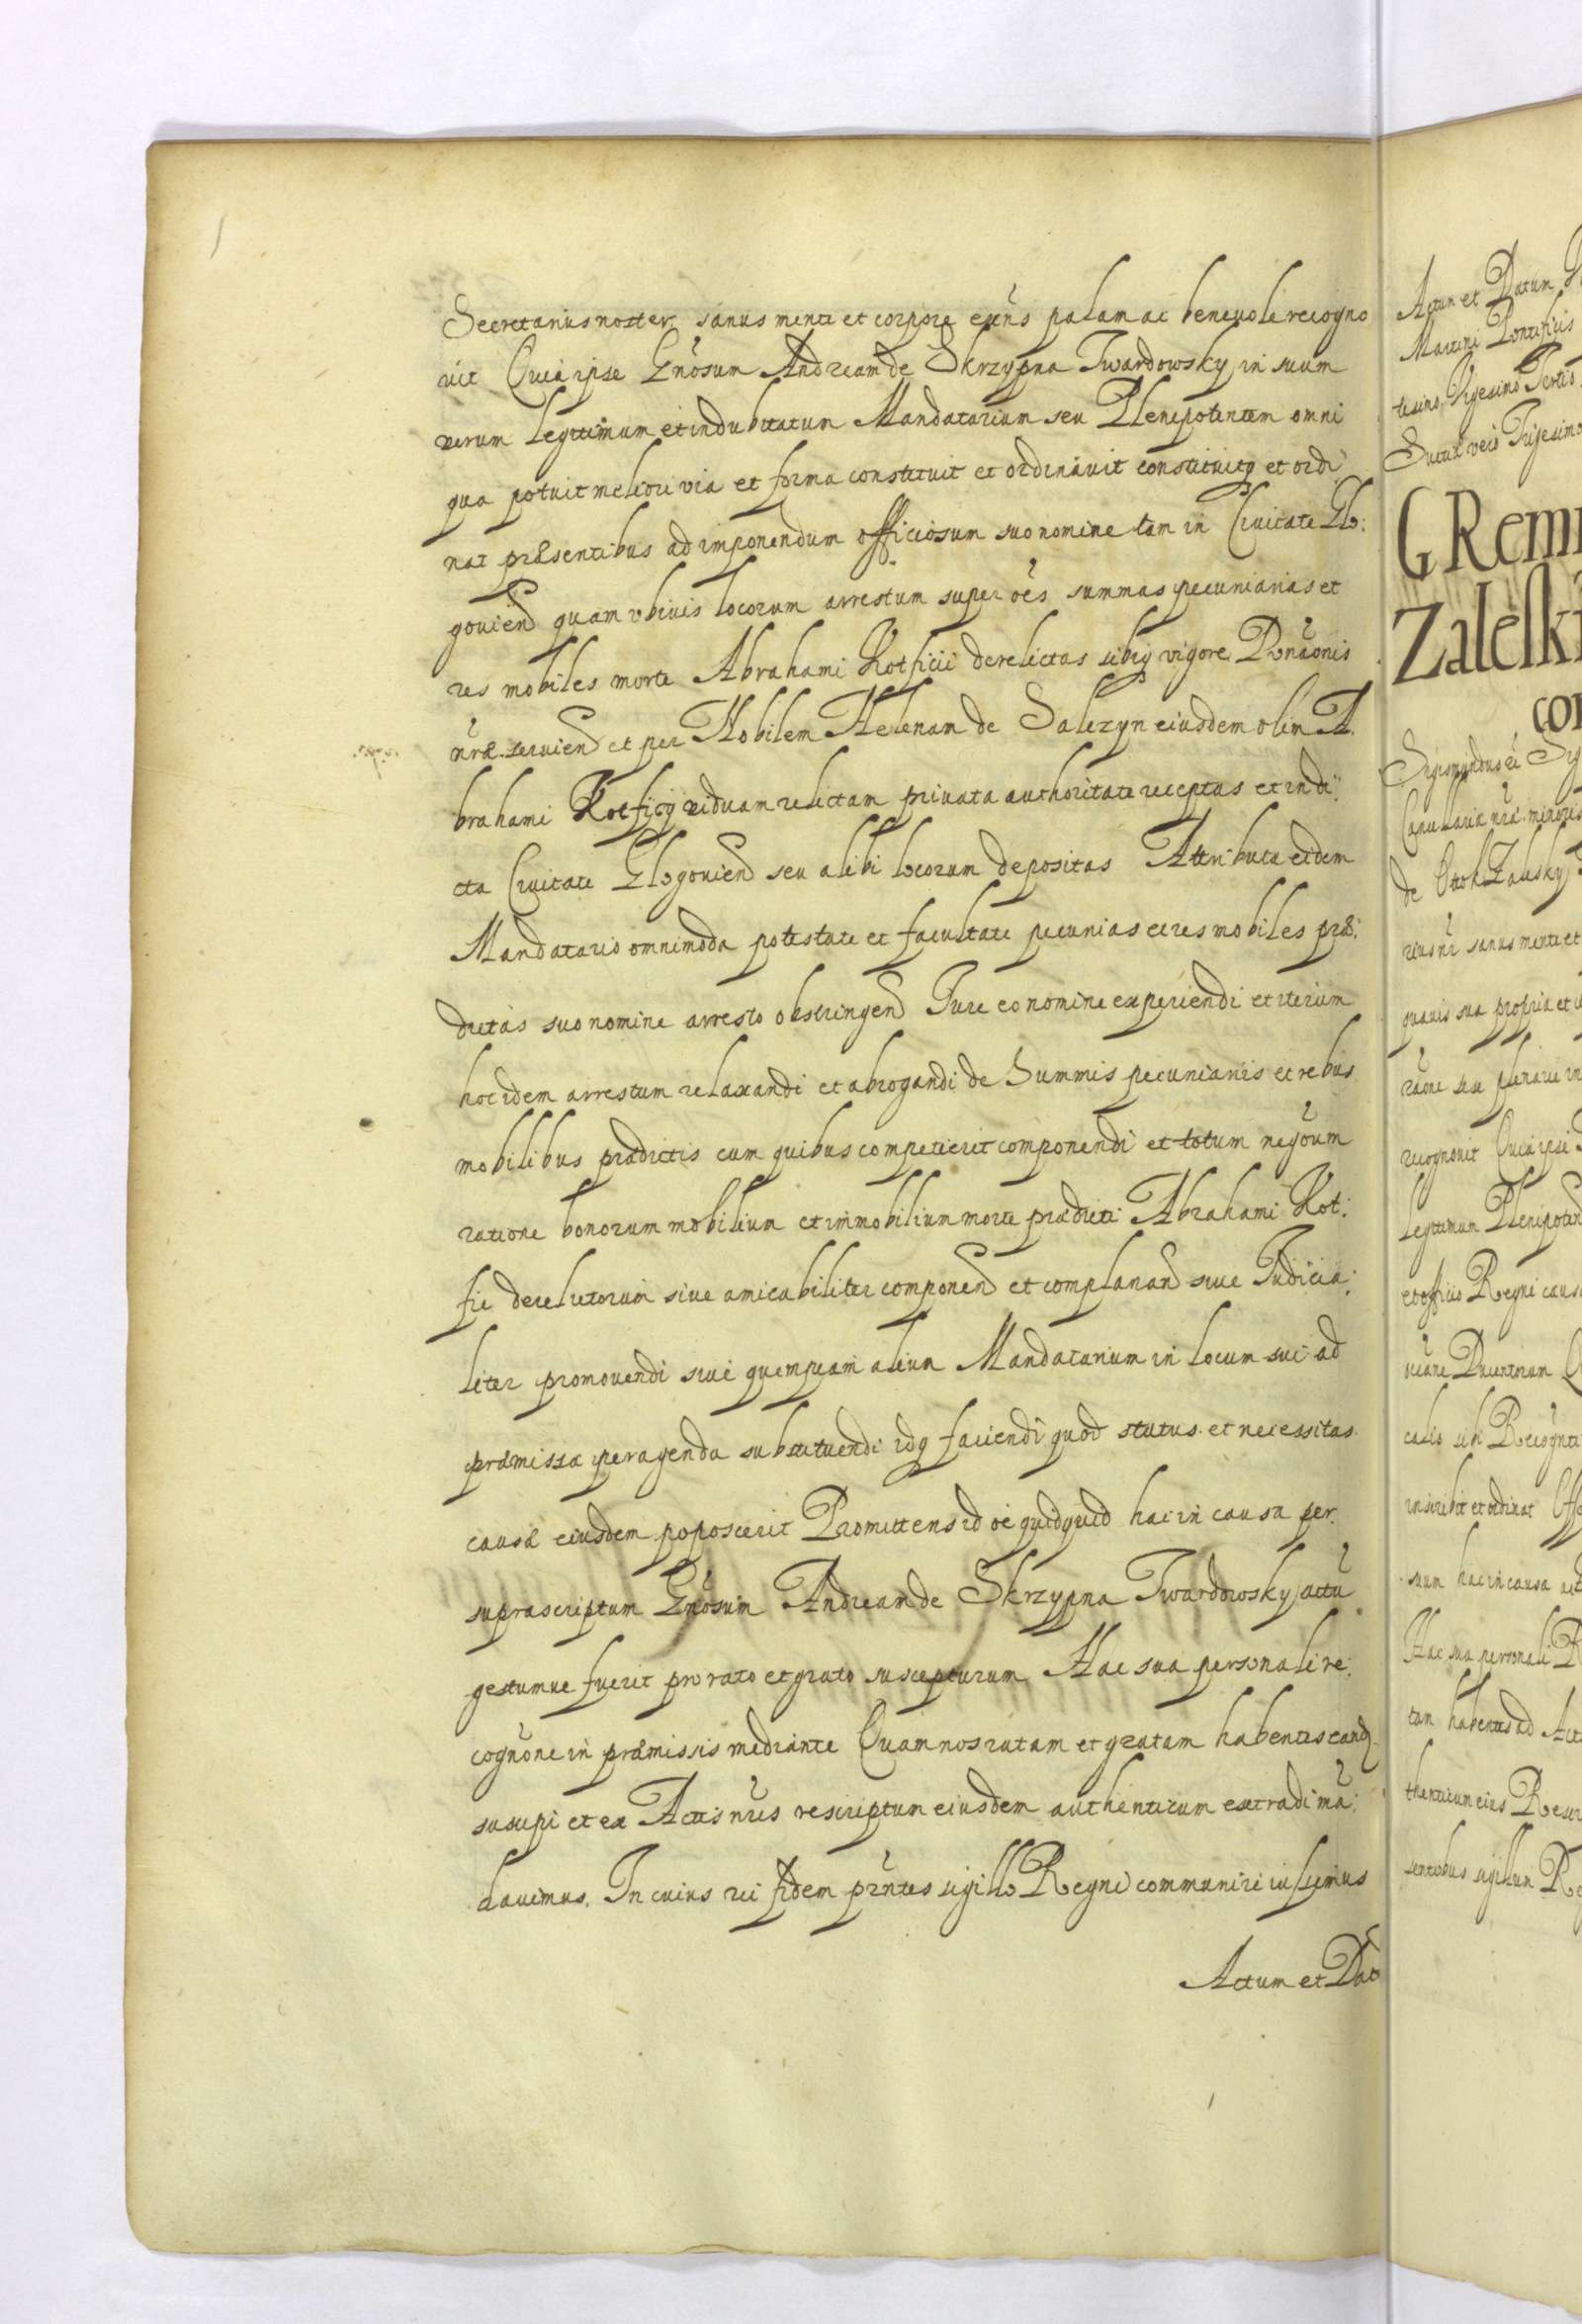 Secretarius noster sanus mente et corpore exñs palam ac beneuole recogno
uit Quia ipse Gñosum Andream de Skrzypna Twardowsky in suum
verum legittimum et indubitatum Mandatarium seu Plenipotentem omni
qua potuit meliori via et forma constituit et ordinauit constituitq et ordi
nat præsentibus ad imponendum officiosum suo nomine tam in Ciuitate Glo:
gouien quam vbiuis locorum arrestum super oẽs summas pecuniarias et
res mobiles morte Abrahami Kotficii derelictas sibiq vigore Donãonis
nrã seruien et per Nobilem Helenam de Salezyn eiusdem olim A
brahami Kotficij viduam relictam priuata authoritate receptas et in di
cta Ciuitate Glogouien seu alibi locorum depositas Attributa eidem
Mandatario omnimoda potestate et facultate pecunias et res mobiles præ:
dictas suo nomine arresto obstringen Iure eo nomine experiendi et iterum
hoc idem arrestum relaxandi et abrogandi de Summis pecuniariis et rebus
mobilibus prædictis cum quibus competierit componendi et totum negõum
ratione bonorum mobilium et immobilium morte prædicti Abrahami Kot:
fic derelictorum siue amicabiliter componen et complanan siue Iudicia:
liter promouendi siue quempiam alium Mandatarium in locum sui ad
præmissa peragenda substituendi idq faciendi quod status et necessitas
causæ eiusdem poposcerit Promittens id oẽ quidquid hac in causa per
suprascriptum Gñosum Andream de Skrzypna Twardowsky actũ
gestumue fuerit pro rato et grato suscepturum Hac sua personali re:
cognõne in præmissis mediante Quam nos ratam et gratam habentes eand
suscipi et ex Actis nris rescriptum eiusdem authenticum extradi mã:
dauimus. In cuius rei fidem prñtes sigillo Regni communiri iussimus
Actum et Dat
Actum et Datum
Martini Pontificis
tesimo Vigesimo Tertio
Suetiæ vero Trigesimo
G Rem
Zaleski
con
Sigismundus
Cancellariæ nræ minoris
de Otok Zalesky
rius nr sanus mente et
quauis sua propria et
recognouit Quia ipse
legittimum Plenipoten
et officio Regni causa
inscribit et ordinat
suum hac in causa
Hac sua personali R
tam habentes ad Act
thenticum eius Rescr
sentibus sigillum Re